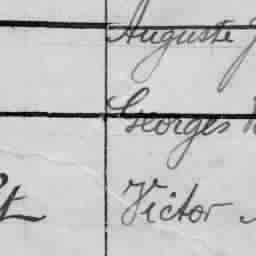 Auguste
Georges
Victor